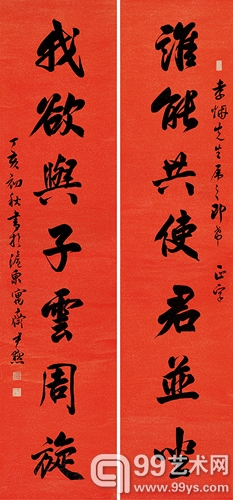 先生属之即希 正字
誰能共使君並坐
我欲與子雲周旋
丁亥初秋書於滬東寓齋 尹默
99艺术网
www.99ys.com